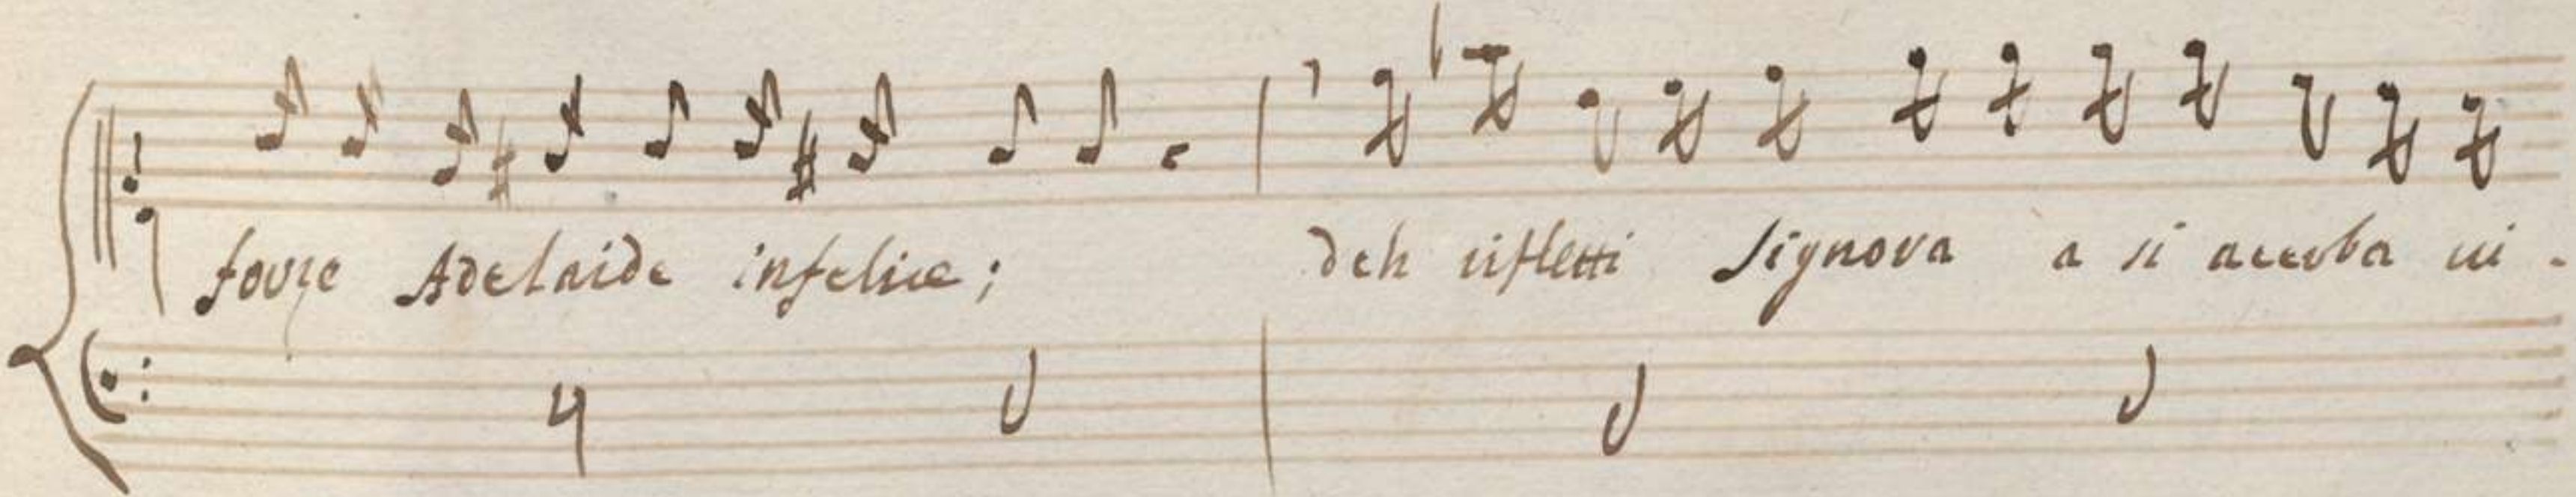 forze Adelaide infelice; deh rifletti Signora a si acerba vi-